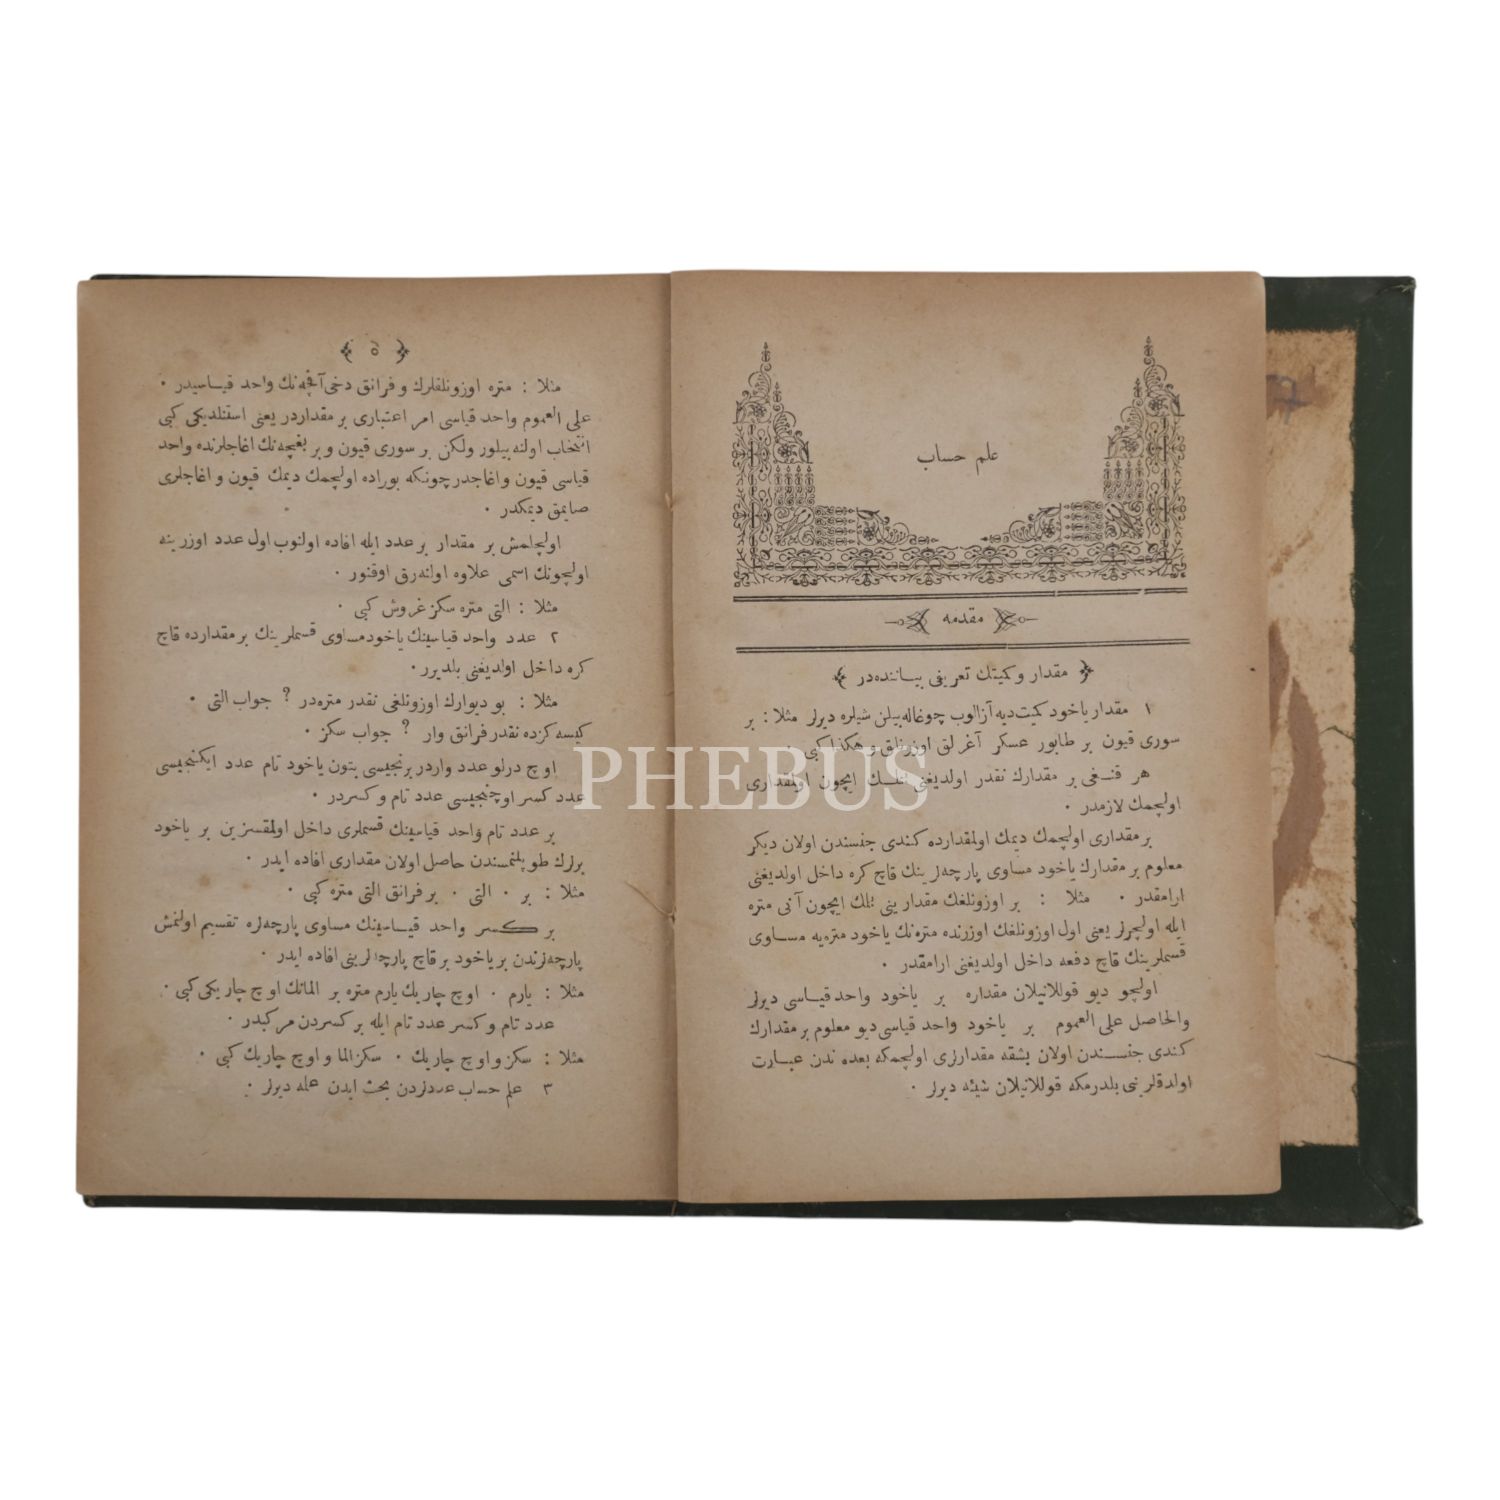 علم حساب
مقدمه
مقدار و كميتك تعريفی بياننده در
١ مقدار ياخود كميت ديه آزالوب چوغاله بيلن شيلره ديرلر مثلا : بر
سوری قيون بر طابور عسكر آغرلق اوزونلق و هكذا كبی
هر قنغی بر مقدارك نقدر اولديغنی بلمك ايچون اولمقداری
اولچمك لازمدر ٠
بر مقداری اولچمك ديمك اولمقدارده كندی جنسندن اولان ديكر
معلوم بر مقدارك ياخود مساوی پارچه لرينك قاچ كره داخل اولديغنی
ارامقدر ٠ مثلا : بر اوزونلغك مقدارينی بلمك ايچون آنی متره
ايله اولچرلر يعنی اول اوزونلغك اوزرنده متره نك ياخود متره يه مساوی
قسملرينك قاچ دفعه داخل اولديغنی ارامقدر ٠
اولچو ديو قوللانيلان مقداره بر ياخود واحد قياسی ديرلر
والحاصل علی العموم بر ياخود واحد قياسی ديو معلوم بر مقدارك
كندی جنسندن اولان بشقه مقدارلری اولچمكه بعده ندن عبارت
اولدقلرينی بلدرمكه قوللانيلان شيئه ديرلر ٠
٥
مثلا : متره اوزونلقلرك و فرانق دخی آقچه نك واحد قياسيدر ٠
علی العموم واحد قياسی امر اعتباری بر مقداردر يعنی استنلديكی كبی
انتخاب اولنه بيلور ولكن بر سوری قيون و بر بغچه نك اغاجلرنده واحد
قياسی قيون و اغاجدر چونكه بوراده اولچمك ديمك قيون و اغاجلری
صايمق ديمكدر ٠
اولچلمش بر مقدار بر عدد ايله افاده اولنوب اول عدد اوزرينه
اولچونك اسمی علاوه اولنه رق اوقنور ٠
مثلا : التی متره سكز غروش كبی ٠
٢ عدد واحد قياسينك ياخود مساوی قسملرينك بر مقدارده قاچ
كره داخل اولديغنی بلديرر ٠
مثلا : بو ديوارك اوزونلغی نقدر متره در ؟ جواب التی ٠
كيسه كزده نقدر فرانق وار ؟ جواب سكز ٠
اوچ درلو عدد واردر برنجيسی بتون ياخود تام عدد ايكنجيسی
عدد كسر اوچنجيسی عدد تام و كسردر ٠
بر عدد تام واحد قياسينك قسملری داخل اولمقسزين بر ياخود
برلرك طوپلنمسندن حاصل اولان مقداری افاده ايدر ٠
مثلا : بر ٠ التی ٠ بر فرانق التی متره كبی ٠
بر كسر واحد قياسينك مساوی پارچه لره تقسيم اولنمش
پارچه لرندن بر ياخود بر قاچ پارچه لرينی افاده ايدر ٠
مثلا : يارم ٠ اوچ چاريك يارم متره بر المانك اوچ چاريكی كبی ٠
عدد تام و كسر عدد تام ايله بر كسردن مركبدر ٠
مثلا : سكز و اوچ چاريك ٠ سكز الما و اوچ چاريك كبی ٠
٣ علم حساب عددلردن بحث ايدن علمه ديرلر ٠
PHEBUS